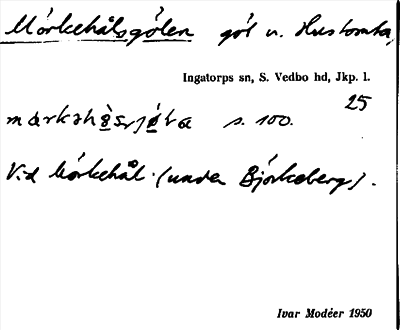 Mörkehålsgölen göl n. Hustomta,
Ingatorps sn, S. Vedbo hd, Jkp. l.
25
s. 100.
Vid Mörkehål (under Björkeberg).
Ivar Modéer 1950